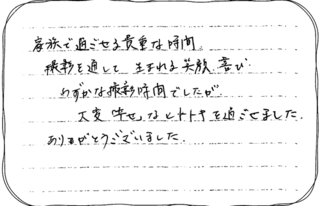 家族で過ごせる貴重な時間。
撮影を通して 生まれる笑顔、喜び
わずかな撮影時間でしたが
大変 幸せなヒトトキを過ごせました。
ありがとうございました。